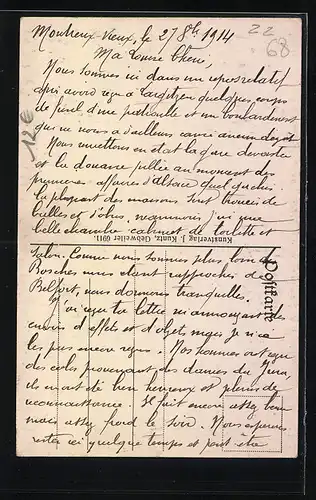 Montreux-Vieux, le 27 8bre 1914
22
68
12€
Ma bonne Chérie,
Nous sommes ici dans un repos relatif
qui avons reçu à quelques coups
de fusil d'une patrouille et un bombardement
qui ne nous a d'ailleurs causé aucun dégât
Nous remettons en état la gare dévastée
et la douane pillée au moment des
premières affaires d'Alsace quel gâchis
la plupart des maisons sont trouées de
balles et d'obus, néanmoins j'ai une
belle chambre cabinet de toilette et
Kunstverlag K. Kuntz, Gebweiler 691.
Postkarte
Salon. Comme nous sommes plus loin des
Boches nous étant rapprochés de
Belfort, nous dormons tranquilles.
J'ai reçu ta lettre m'annonçant des
envois d'effets et d'objets mais je n'ai
les pas encore reçus. Nos hommes ont reçu
des colis provenant des dames du Jura
ils ont été bien heureux et pleins de
reconnaissance. Il fait encore assez beau
mais assez froid le soir. Nous espérons
rester ici quelque temps et peut être